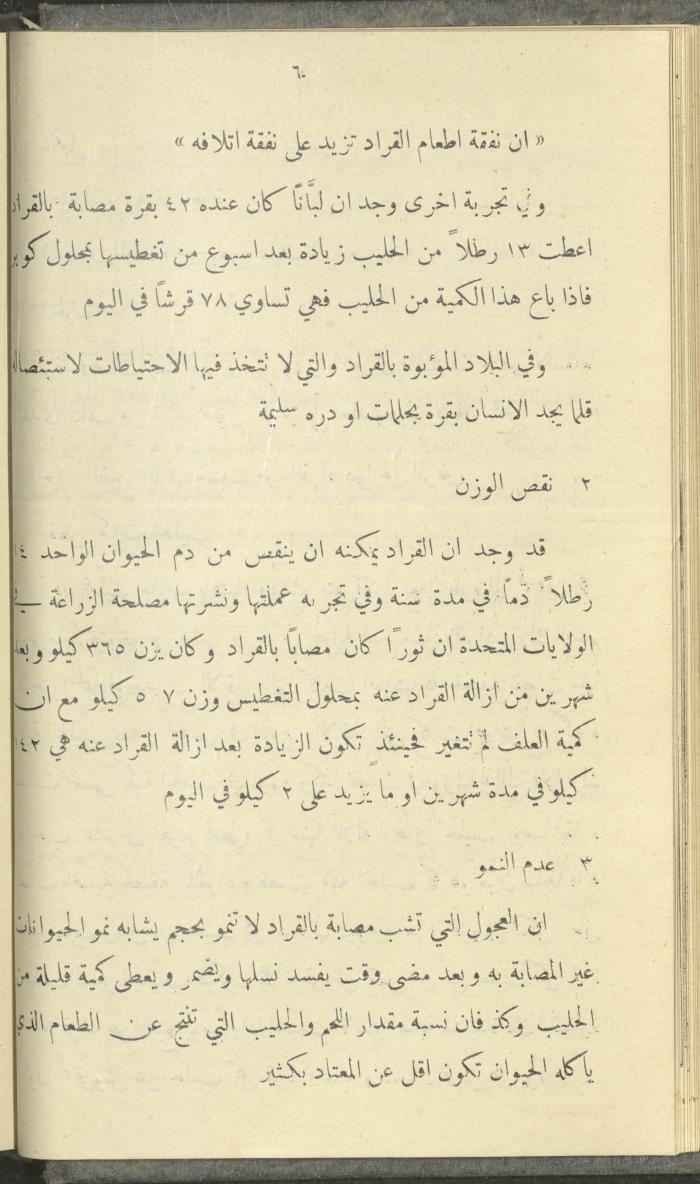 ٦٠
« ان نفقة اطعام القراد تزيد على نفقة اتلافه »
وفي تجربة اخرى وجد ان لبَّانًا كان عنده ٤٢ بقرة مصابة بالقراد
اعطت ١٣ رطلاً من الحليب زيادة بعد اسبوع من تغطيسها بمحلول كوبر
فاذا باع هذا الكمية من الحليب فهي تساوي ٧٨ قرشاً في اليوم
وفي البلاد المؤبوة بالقراد والتي لا تتخذ فيها الاحتياطات لاستئصاله
قلما يجد الانسان بقرة بحلمات او دره سليمة
٢ نقص الوزن
قد وجد ان القراد يمكنه ان ينقص من دم الحيوان الواحد
رطلاً دماً في مدة سنة وفي تجربه عملتها ونشرتها مصلحة الزراعة في
الولايات المتحدة ان ثورًا كان مصابًا بالقراد وكان يزن ٣٦٥ كيلو وبعد
شهرين من ازالة القراد عنه بمحلول التغطيس وزن ٥٠٧ كيلو مع ان
كمية العلف لم تتغير فحينئذ تكون الزيادة بعد ازالة القراد عنه هي ١٤٢
كيلو في مدة شهرين او ما يزيد على ٢ كيلو في اليوم
٣ عدم النمو
ان العجول التي تشب مصابة بالقراد لا تنمو بحجم يشابه نمو الحيوانات
غير المصابة به وبعد مضى وقت يفسد نسلها ويضمر ويعطى كمية قليلة من
الحليب وكذ فان نسبة مقدار اللحم والحليب التي تنتج عن الطعام الذي
ياكله الحيوان تكون اقل عن المعتاد بكثير